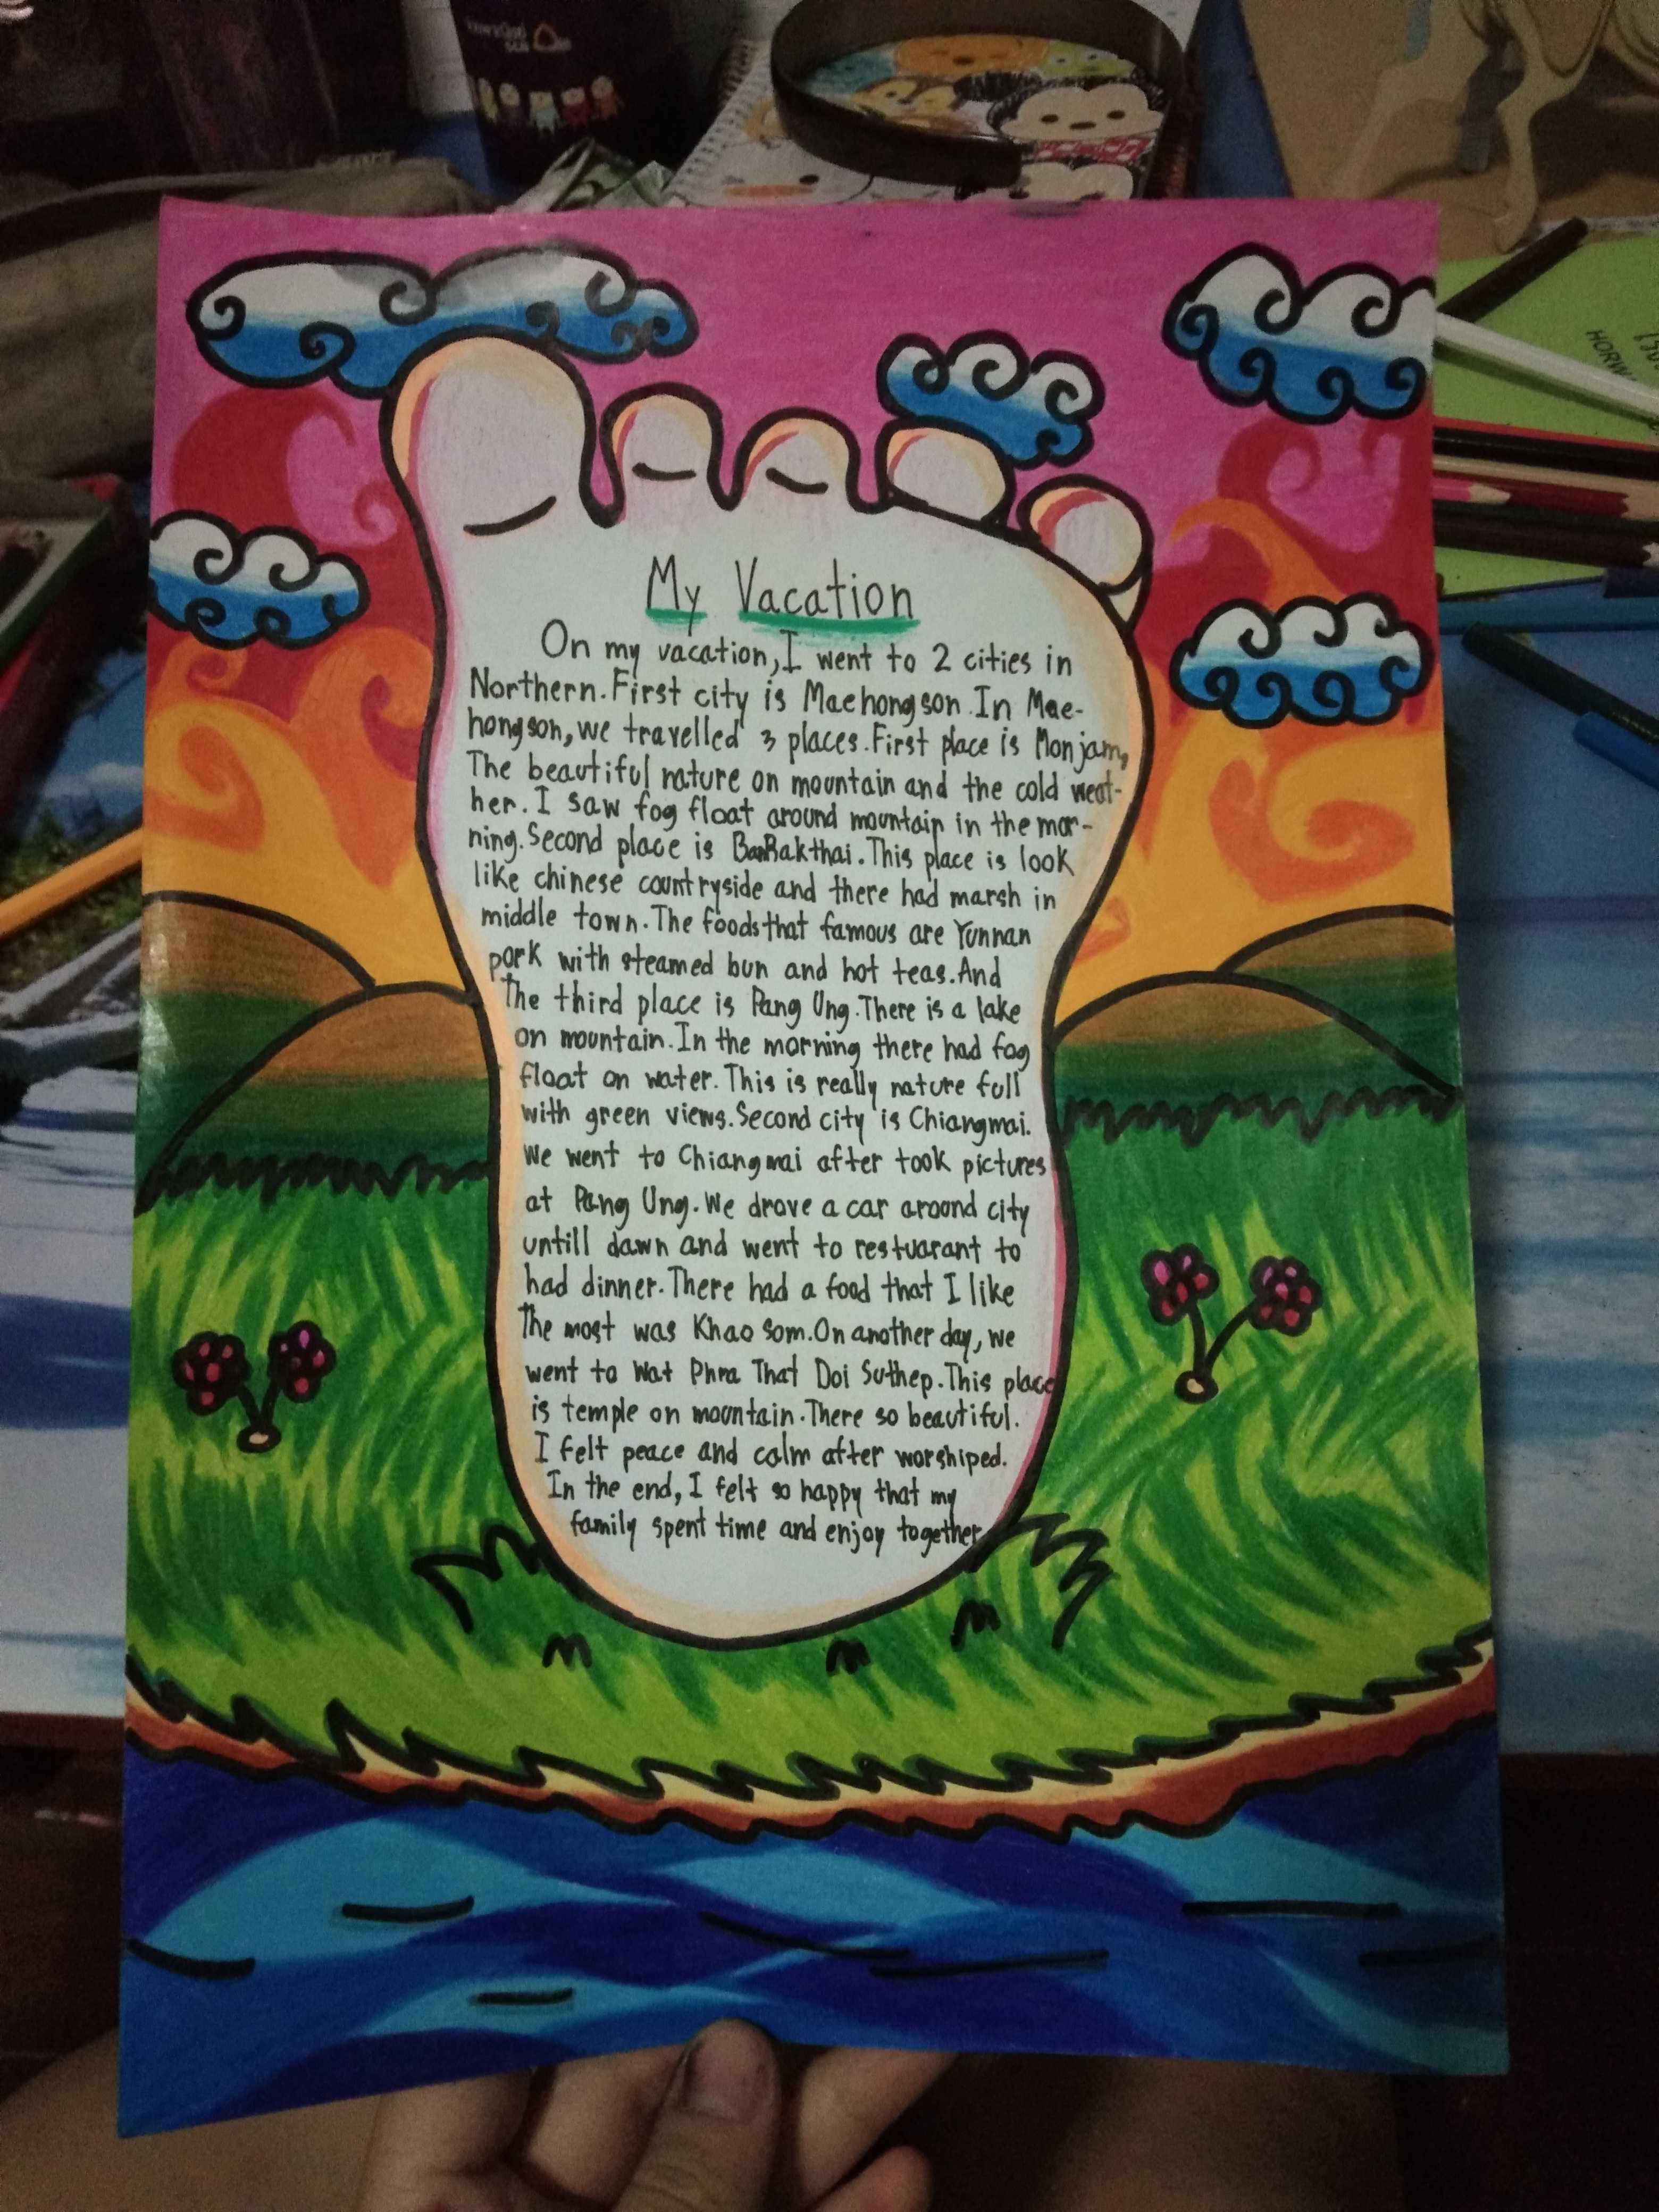 My Vacation
On my vacation, I went to 2 cities in
Northern. First city is Maehongson. In Mae-
hongson, we travelled 3 places. First place is Monjam,
The beautiful nature on mountain and the cold weat-
her. I saw fog float around mountain in the mor-
ning. Second place is BanRakthai. This place is look
like chinese countryside and there had marsh in
middle town. The foods that famous are Yunnan
pork with steamed bun and hot teas. And
The third place is Pang Ung. There is a lake
on mountain. In the morning there had fog
float on water. This is really nature full
with green views. Second city is Chiangmai.
We went to Chiangmai after took pictures
at Pang Ung. We drove a car around city
untill dawn and went to restuarant to
had dinner. There had a food that I like
The most was Khao Som. On another day, we
went to Wat Phra That Doi Suthep. This place
is temple on mountain. There so beautiful.
I felt peace and calm after worshiped.
In the end, I felt so happy that my
family spent time and enjoy together